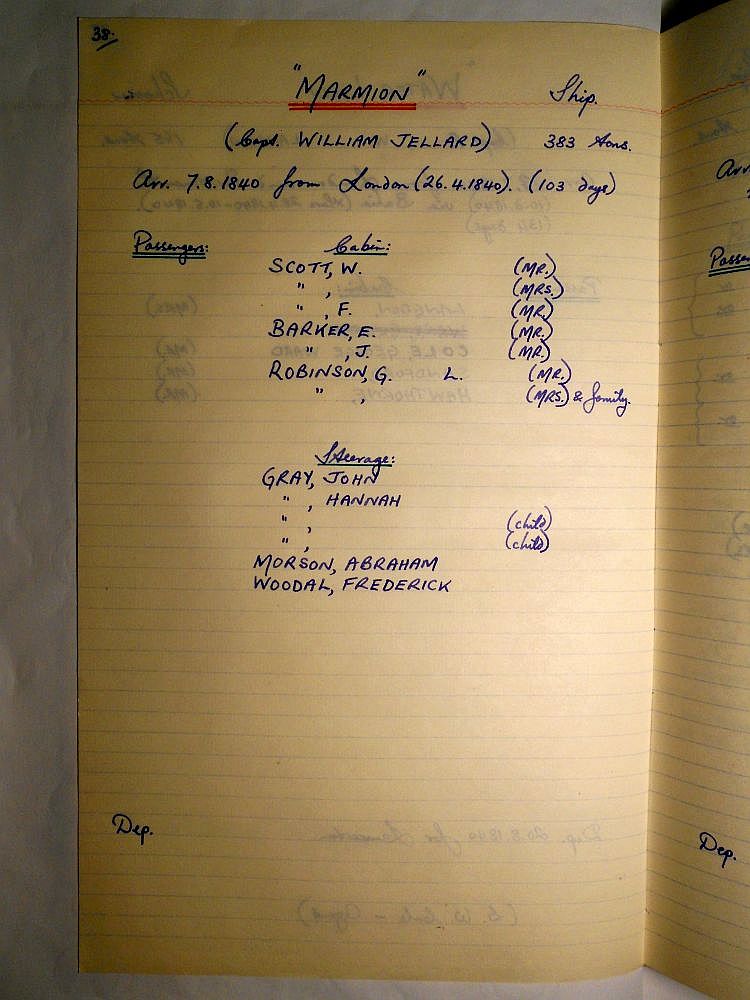 38.
"MARMION" Ship.
(Capt. WILLIAM JELLARD) 383 tons.
Arr. 7.8.1840 from London (26.4.1840). (103 days)
Passengers: Cabin:
SCOTT, W. (MR.)
" , (MRS.)
" , F. (MR.)
BARKER, E. (MR.)
" , J. (MR.)
ROBINSON, G. L. (MR.)
" , (MRS.) & family.
Steerage:
GRAY, JOHN
" , HANNAH
" , (child)
" , (child)
MORSON, ABRAHAM
WOODAL, FREDERICK
Dep.
Arr.
Passen
Dep.